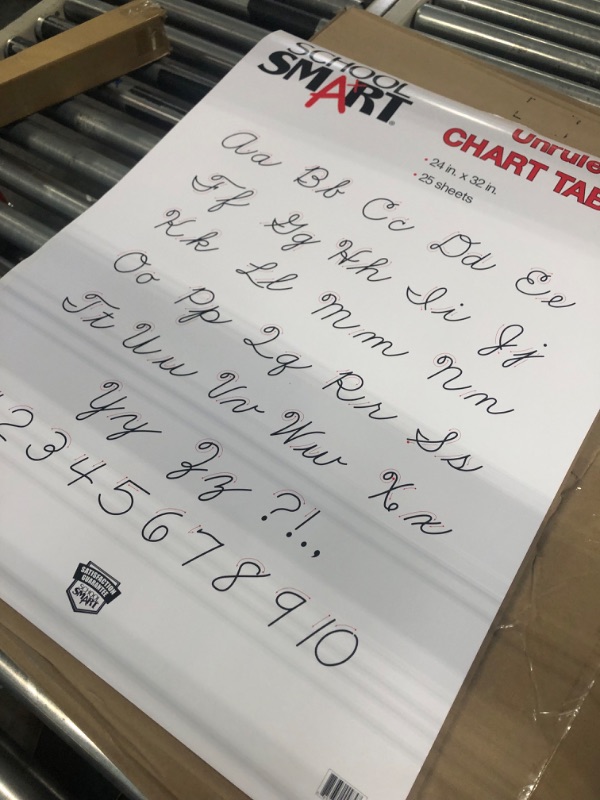 SCHOOL
SMART®
Unrule
CHART TAB
• 24 in. x 32 in.
• 25 sheets
Aa Bb Cc Dd Ee
Ff Gg Hh Ii Jj
Kk Ll Mm Nn
Oo Pp Qq Rr Ss
Tt Uu Vv Ww Xx
Yy Zz ?!.,
2 3 4 5 6 7 8 9 10
SATISFACTION
GUARANTEE
SCHOOL
SMART